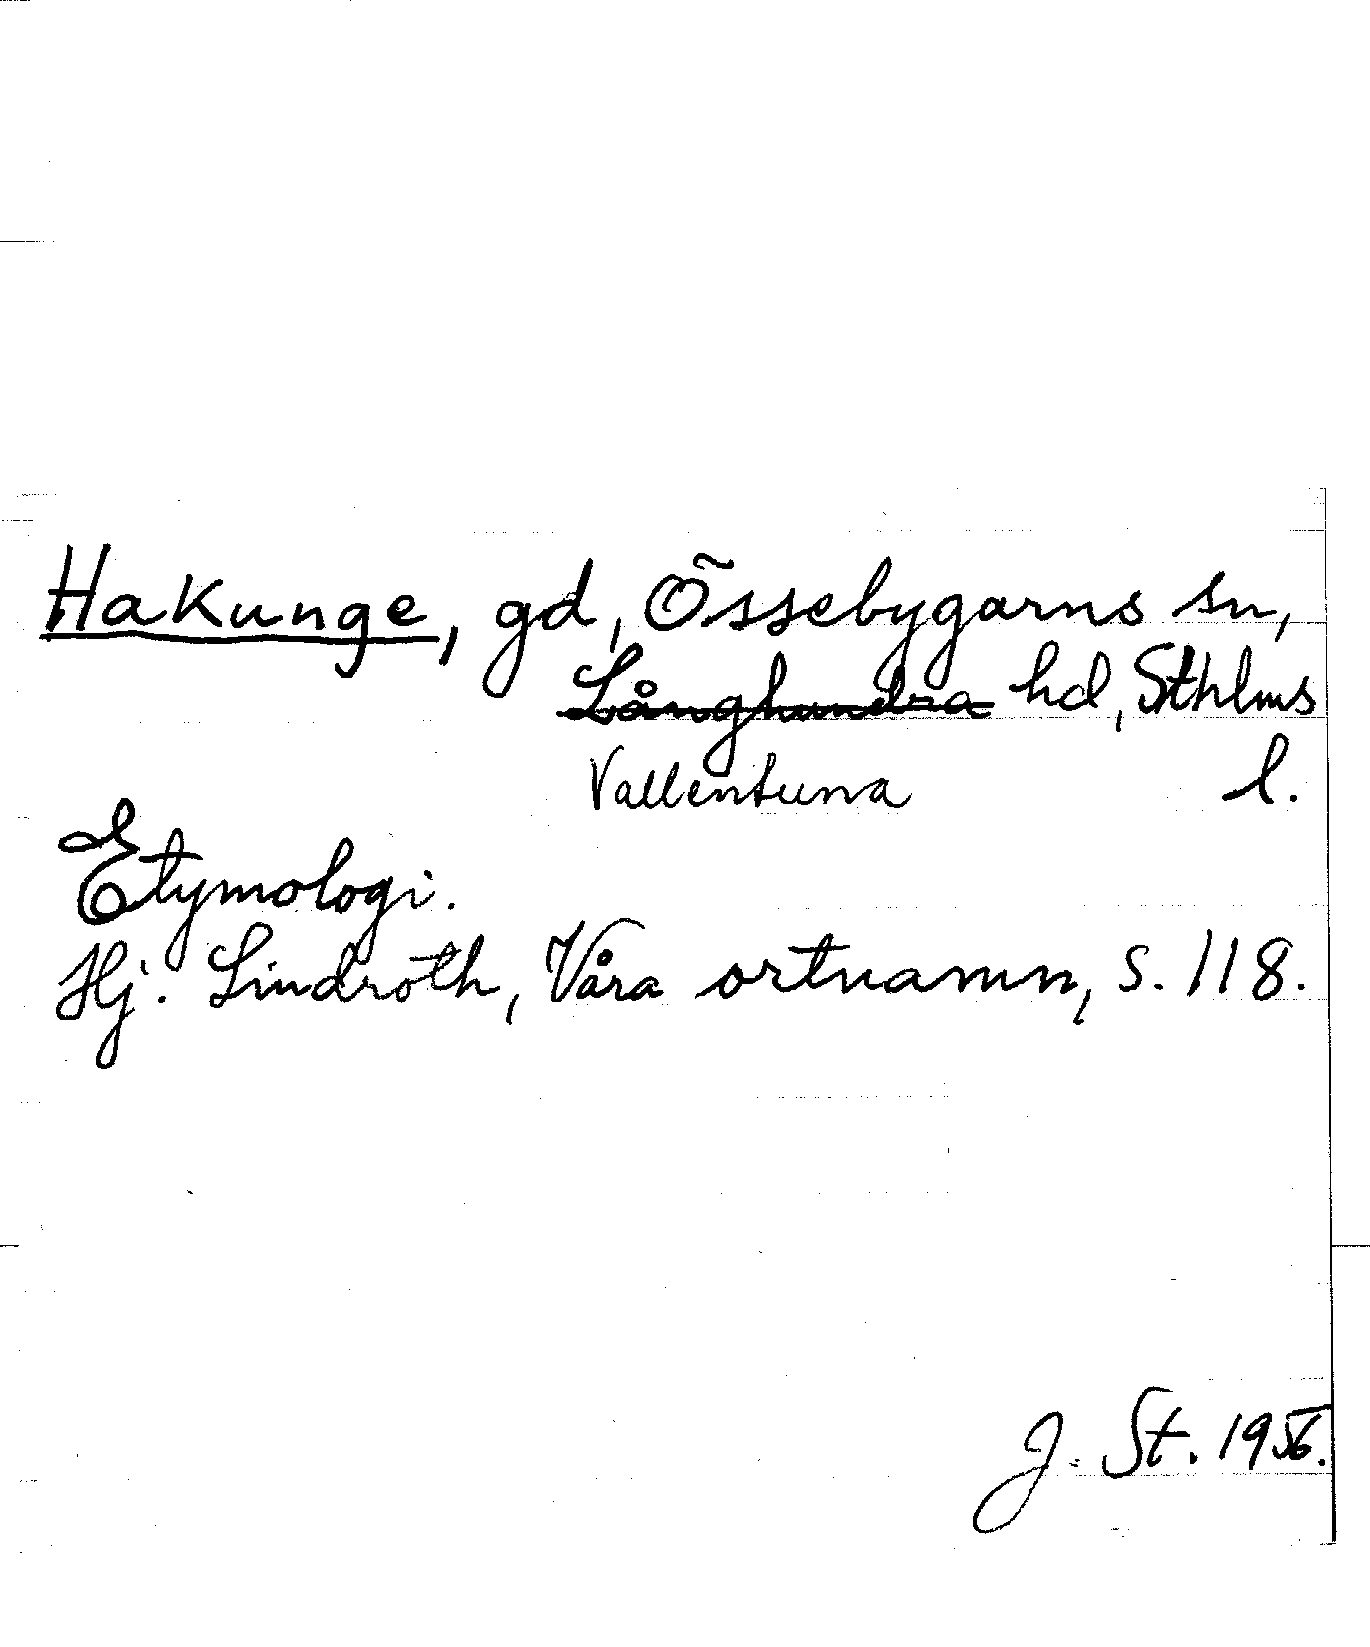 Hakunge, gd, Össebygarns sn,
Långhundra hd, Sthlms
Vallentuna l.
Etymologi.
Hj. Lindroth, Våra ortnamn, s. 118.
J. St. 1956.